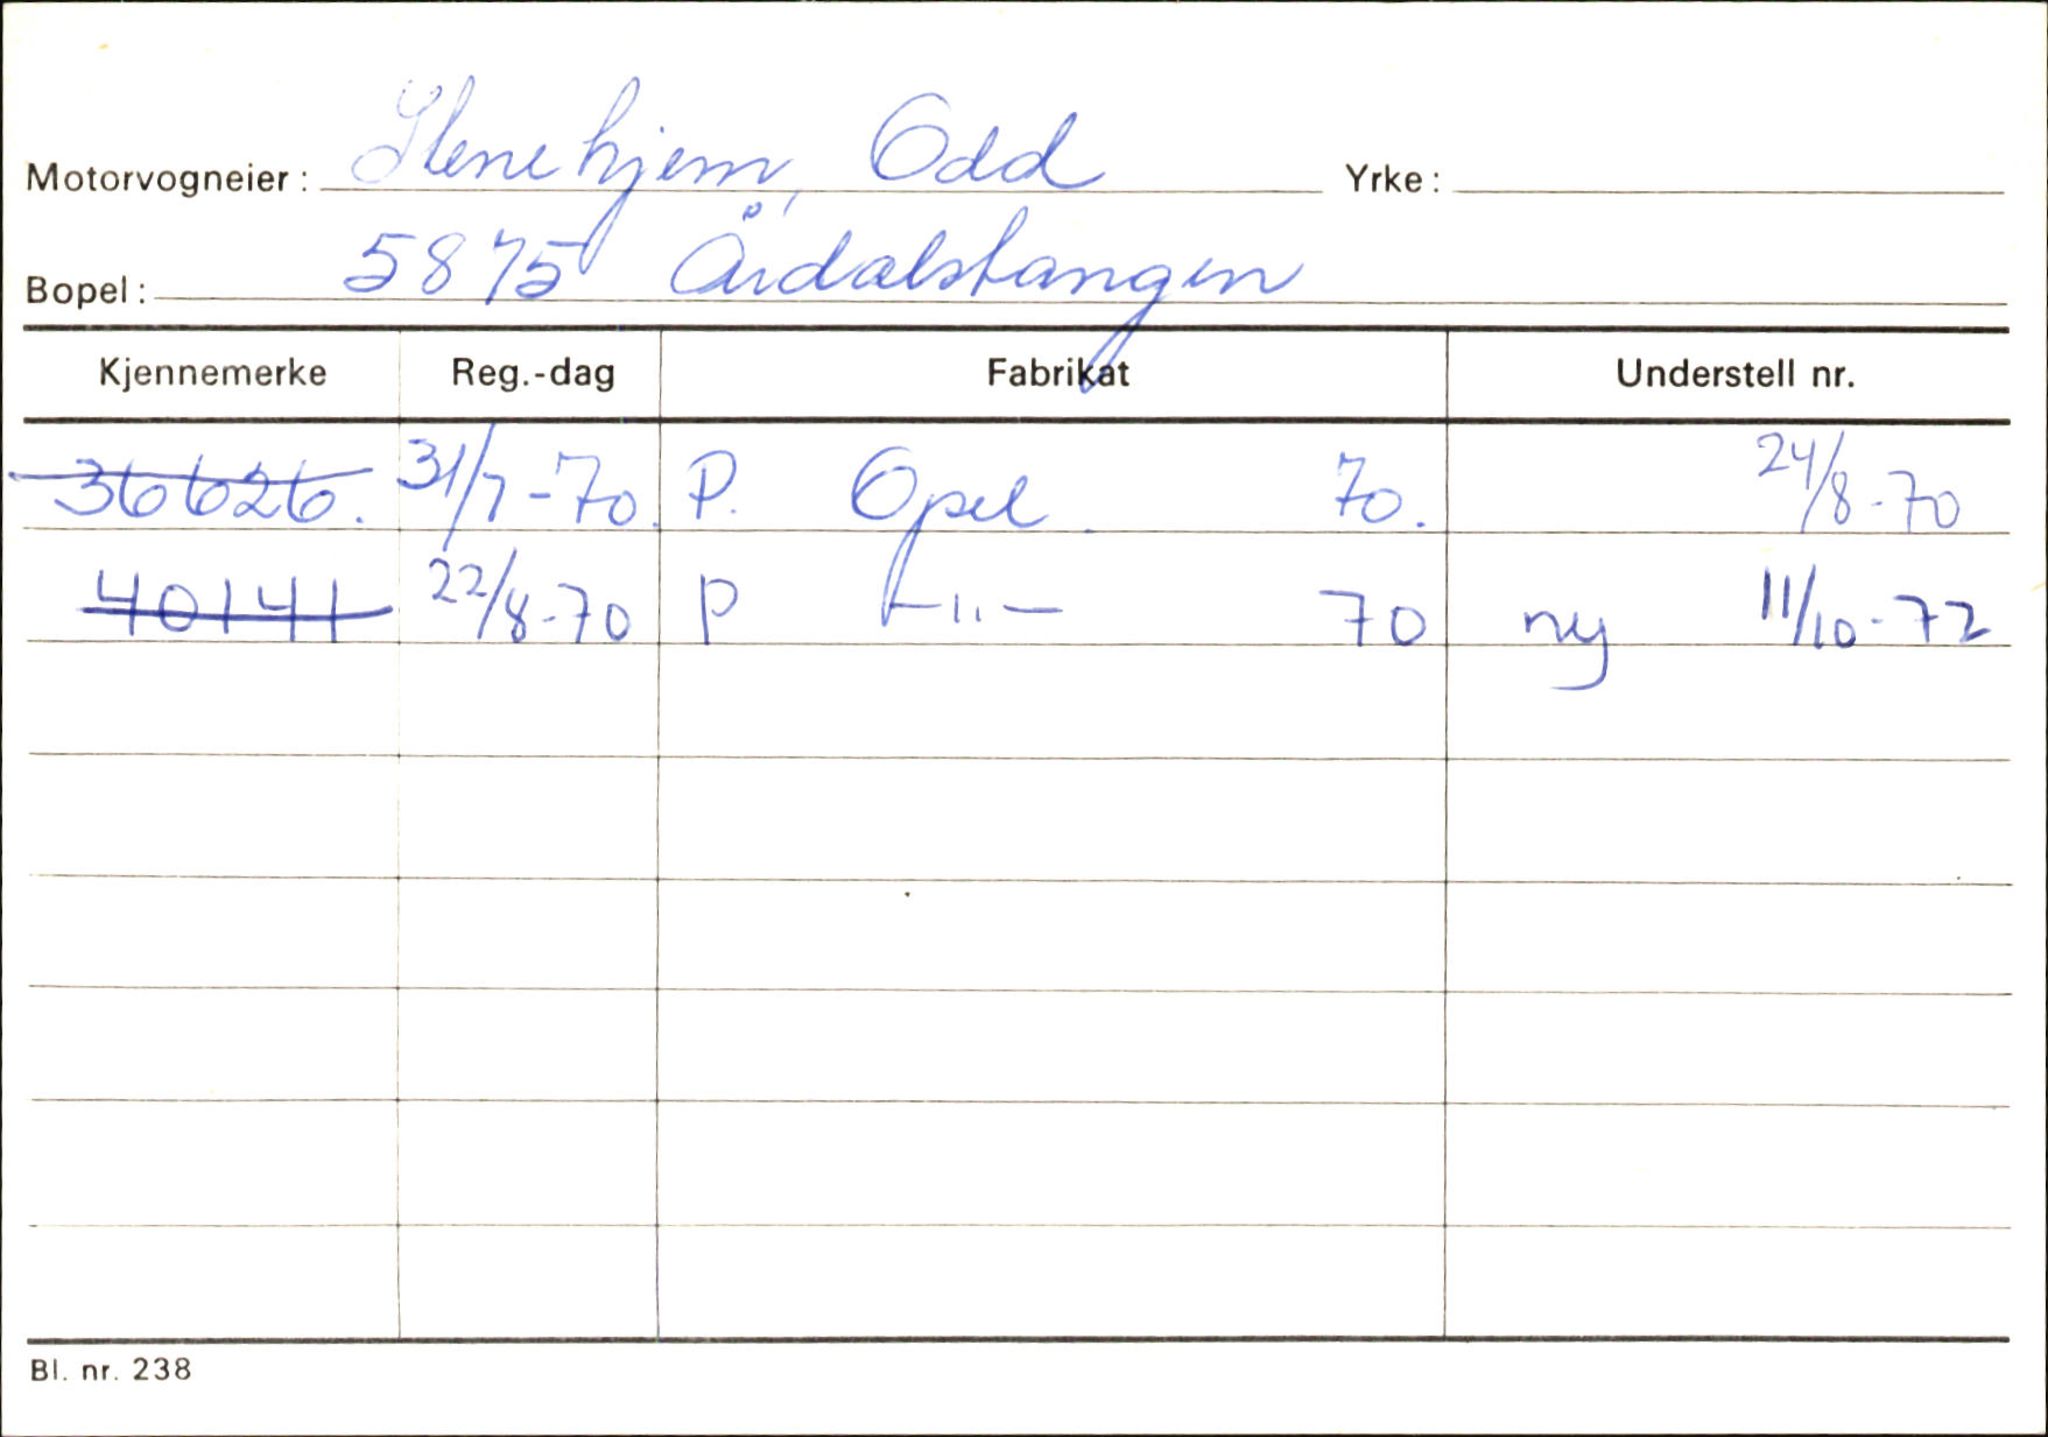 Motorvogneier: Stenehjem, Odd Yrke:
Bopel: 5875 Årdalstangen
Kjennemerke Reg.-dag Fabrikat Understell nr.
36626. 31/7-70. P. Opel. 70. 24/8-70
40141 22/8-70 P —"— 70 ny 11/10-72
Bl. nr. 238